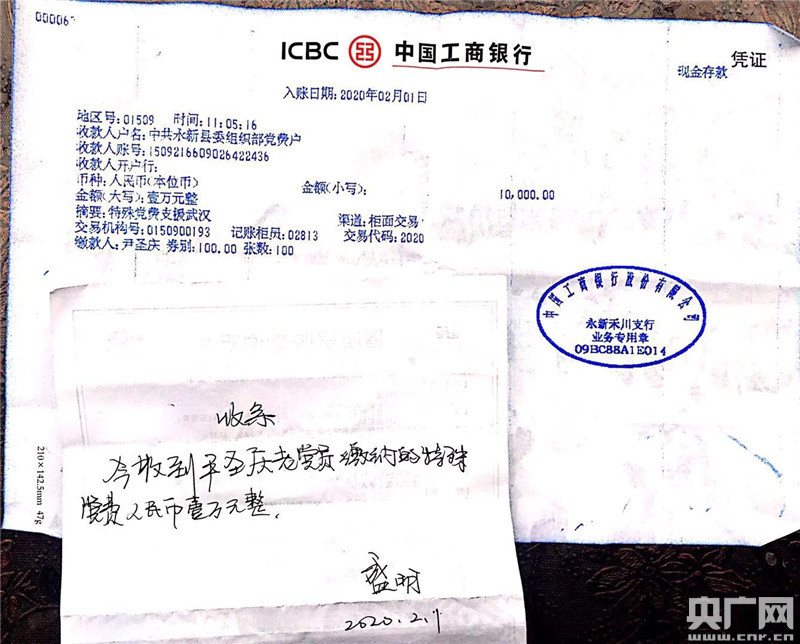 00006
ICBC 中国工商银行
凭证
现金存款
入账日期:2020年02月01日
地区号:01509 时间:11:05:16
收款人户名:中共永新县委组织部党费户
收款人账号:1509216609026422436
收款人开户行:
币种:人民币(本位币) 金额(小写): 10,000.00
金额(大写):壹万元整
摘要:特殊党费支援武汉 渠道:柜面交易
交易机构号:0150900193 记账柜员:02813 交易代码:2020
缴款人:尹圣庆 券别:100.00 张数:100
中国工商银行股份有限公司
永新禾川支行
业务专用章
09BC88A1E014
210×142.5mm 47g
收条
今收到尹圣庆老党员缴纳的特殊
党费人民币壹万元整.
盛明
2020.2.1
央广网
www.cnr.cn